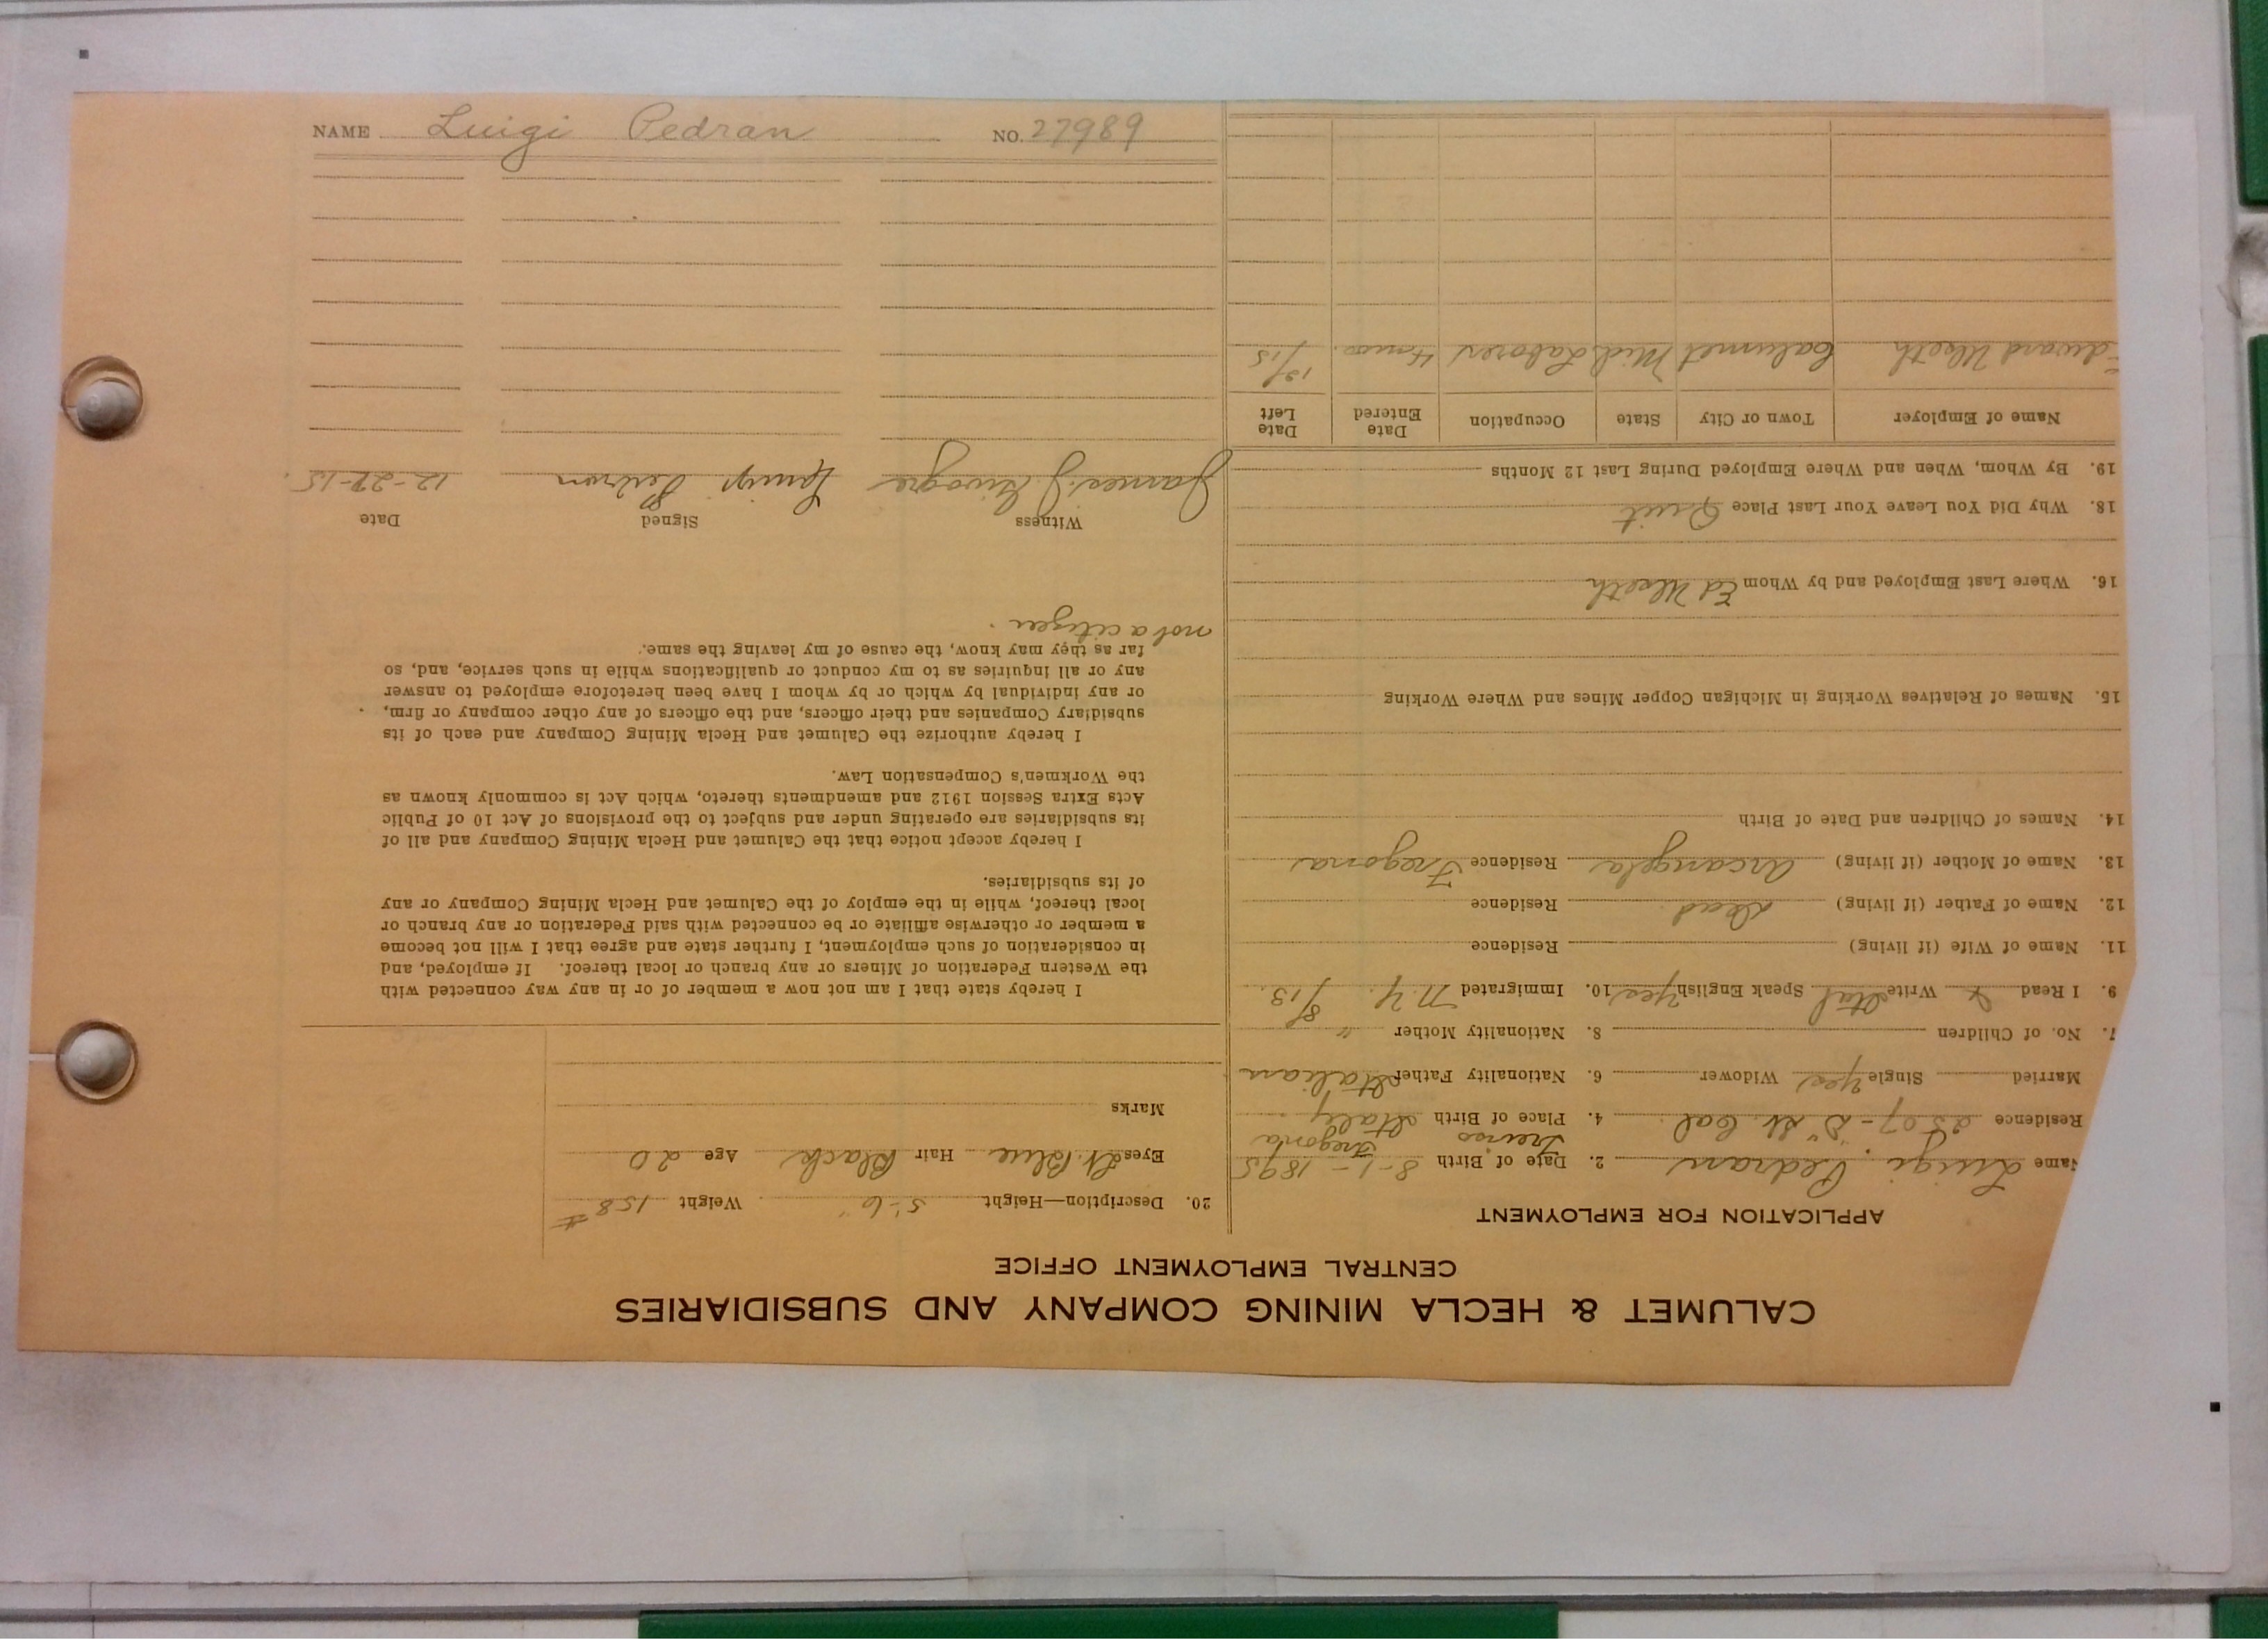 CALUMET & HECLA MINING COMPANY AND SUBSIDIARIES
CENTRAL EMPLOYMENT OFFICE
APPLICATION FOR EMPLOYMENT
Name Luigi Pedran 2. Date of Birth 8-1-1895
Fregona
Residence 2507-"D" St. Cal. 4. Place of Birth Italy
Married Single Yes Widower 6. Nationality Father Italian
7. No. of Children 8. Nationality Mother "
9. I Read Write Ital Speak English Yes 10. Immigrated N.Y. 8/13.
11. Name of Wife (if living) Residence
12. Name of Father (if living) Dead Residence
13. Name of Mother (if living) Arcangela Residence Fregona
14. Names of Children and Date of Birth
15. Names of Relatives Working in Michigan Copper Mines and Where Working
16. Where Last Employed and by Whom Ed
18. Why Did You Leave Your Last Place Quit
19. By Whom, When and Where Employed During Last 12 Months
Name of Employer Town or City State Occupation Date Entered Date Left
Edward Calumet Mich Laborer 4 mos. 12/15
20. Description—Height 5'-6" Weight 158#
Eyes Lt. Blue Hair Black Age 20
Marks
I hereby state that I am not now a member of or in any way connected with
the Western Federation of Miners or any branch or local thereof. If employed, and
in consideration of such employment, I further state and agree that I will not become
a member or otherwise affiliate or be connected with said Federation or any branch or
local thereof, while in the employ of the Calumet and Hecla Mining Company or any
of its subsidiaries.
I hereby accept notice that the Calumet and Hecla Mining Company and all of
its subsidiaries are operating under and subject to the provisions of Act 10 of Public
Acts Extra Session 1912 and amendments thereto, which Act is commonly known as
the Workmen's Compensation Law.
I hereby authorize the Calumet and Hecla Mining Company and each of its
subsidiary Companies and their officers, and the officers of any other company or firm,
or any individual by which or by whom I have been heretofore employed to answer
any or all inquiries as to my conduct or qualifications while in such service, and, so
far as they may know, the cause of my leaving the same.
not a citizen.
Witness Signed Date
James J. Luigi Pedron 12-27-15.
NAME Luigi Pedran NO. 27989